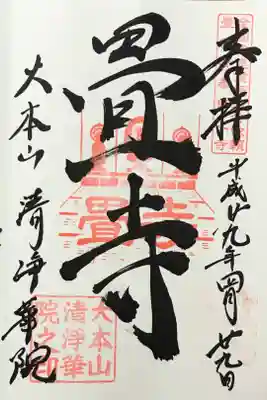 奉拝
平成廿九年四月廿九日
畳寺
大本山 清浄華院
畳寺
大本山
清浄華
院之印